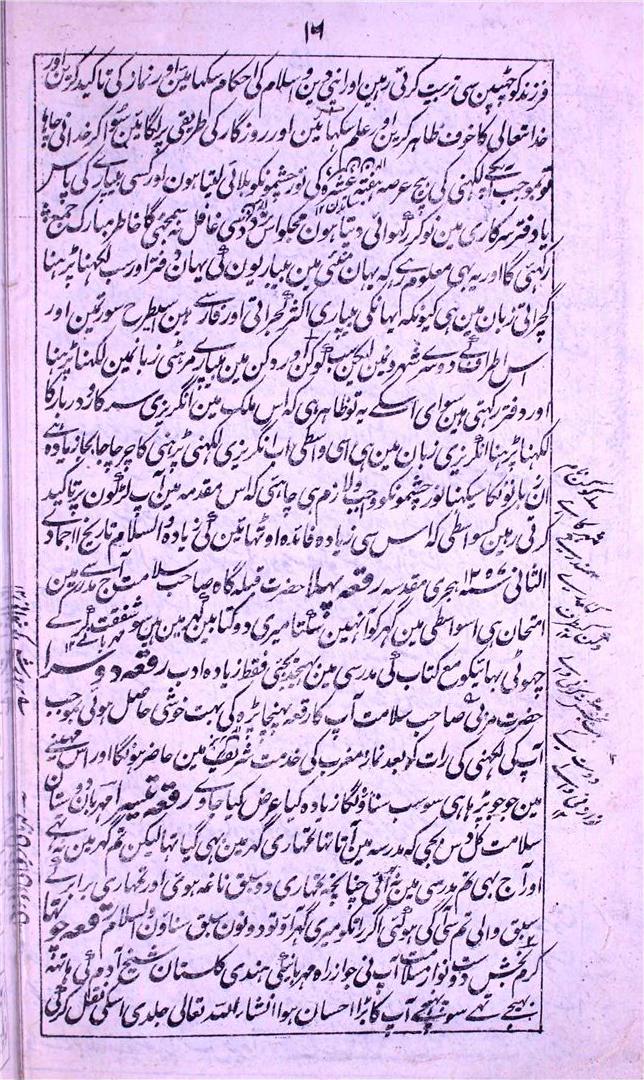 ۱۶
فرزند کو چٹپن سی تربیت کرتی رہین اور اپنی دین و اسلام کی احکام سکہائین اور نماز کی تاکید کرین اور
خدا تعالی کا خوف ظاہر کرین اور علم سکہائین اور روزگار کی طریقی پر لگائین سو اگر خدا نی چاہا
تو بموجب آپکی لکہنی کی بیچ عرصہ ہفتہ عشرہ کی نور چشمونکو بلائی لیتا ہون اور کسی بیپاری کی پاس
یا دفتر سرکاری مین نوکر رکہوائی دیتا ہون مجکو اس غافل نہ سمجہئی گا خاطر مبارک جمع
رکہئی گا اور یہ بہی معلوم رہے کہ یہان ممبئی مین بیپاریون کی یہان دفتر اور سب لکہنا پڑہنا
گجراتی زبان مین ہی کیونکہ یہانکی بیپاری اکثر گجراتی اور فارسے ہین اسیطرح سورتمین اور
اس اطراف کے دوسرے شہرونمین لیکن سب کوکن اور دکن مین بیپارے مرہٹی زبانمین لکہنا پڑہنا
اور دفتر رکہتی ہین سوای اسکے یہ تو ظاہر ہی کہ اس ملک مین انگریزی سرکار و دربار کا
لکہنا پڑہنا انگریزی زبان مین ہی اسی واسطی اب انگریزی لکہنی پڑہنی کا چرچا جابجا زیادہ ہے
ان زبانونکا سیکہنا نور چشمونکو واجب و لازم ہی چاہئی کہ اس مقدمہ مین آپ لڑکون پر تاکید
کرتی رہین کسواسطی کہ اس سی زیادہ فائدہ اوٹہائین گی زیادہ والسلام تاریخ جمادی
الثانی سنہ ۱۲۵۷ ہجری مقدسہ رقعہ پہلا حضرت قبلہ گاہ صاحب سلامت آج مدرسے مین
امتحان ہی اسواسطی مین گہر کو آ نہین سکتا میری دو کتابین گہر مین ہین سو شفقت کرکے
چہوٹی بہائیکو مع کتاب کی مدرسی مین بہیجدیجئی فقط زیادہ ادب رقعہ دوسرا
حضرت مربی صاحب سلامت آپ کا رقعہ پہنچا پڑہ کی بہت خوشی حاصل ہوئی بموجب
آپ کی لکہنی کی رات کو بعد نماز مغرب کی خدمت شریف مین حاضر ہونگا اور اس مہینے
مین جو جو پڑہا ہی سو سب سناؤنگا زیادہ کیا عرض کیا جاوے رقعہ تیسرا مہربان دوستان
سلامت کل دس بجی کہ مدرسہ مین آتا تہا تمہاری گہر مین بہی گیا تہا لیکن تم گہر مین نہ تہے
اور آج بہی تم مدرسی مین نہ آئی چنانچہ تمہاری دو سبق ناغہ ہوئی اور تمہاری برابر کے
سبق والی تم سی آگی ہو گئی اگر رات کو میری گہر آؤ تو دونون سبق سناؤن والسلام رقعہ چوتہا
کرم بخش دوست نواز سلامت آپ نی جو از راہ مہربانی ہندی گلستان شیخ آدم کی ہاتہہ
بہیجے تہے سو پہنچے آپ کا بڑا احسان ہوا انشاءاللہ تعالی جلدی اسکی نقل کرکے